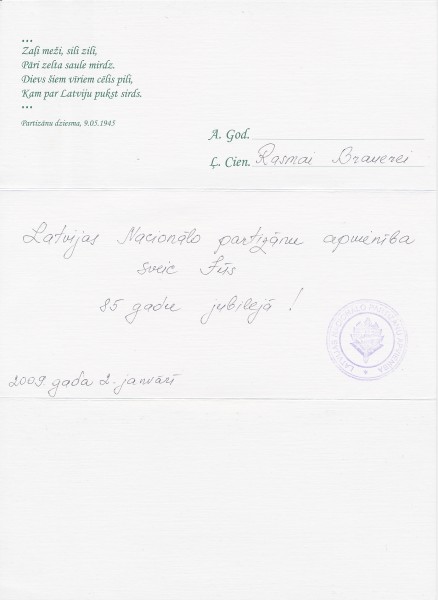 ...
Zaļi meži, sili zili,
Pāri zelta saule mirdz.
Dievs šiem vīriem cēlis pili,
Kam par Latviju pukst sirds.
...
Partizānu dziesma, 9.05.1945
A. God.
Ļ. Cien. Rasmai Brauerei
Latvijas Nacionālo partizānu apvienība
sveic Jūs
85 gadu jubilejā !
2009. gada 2. janvārī
LATVIJAS NACIONĀLO PARTIZĀNU APVIENĪBA